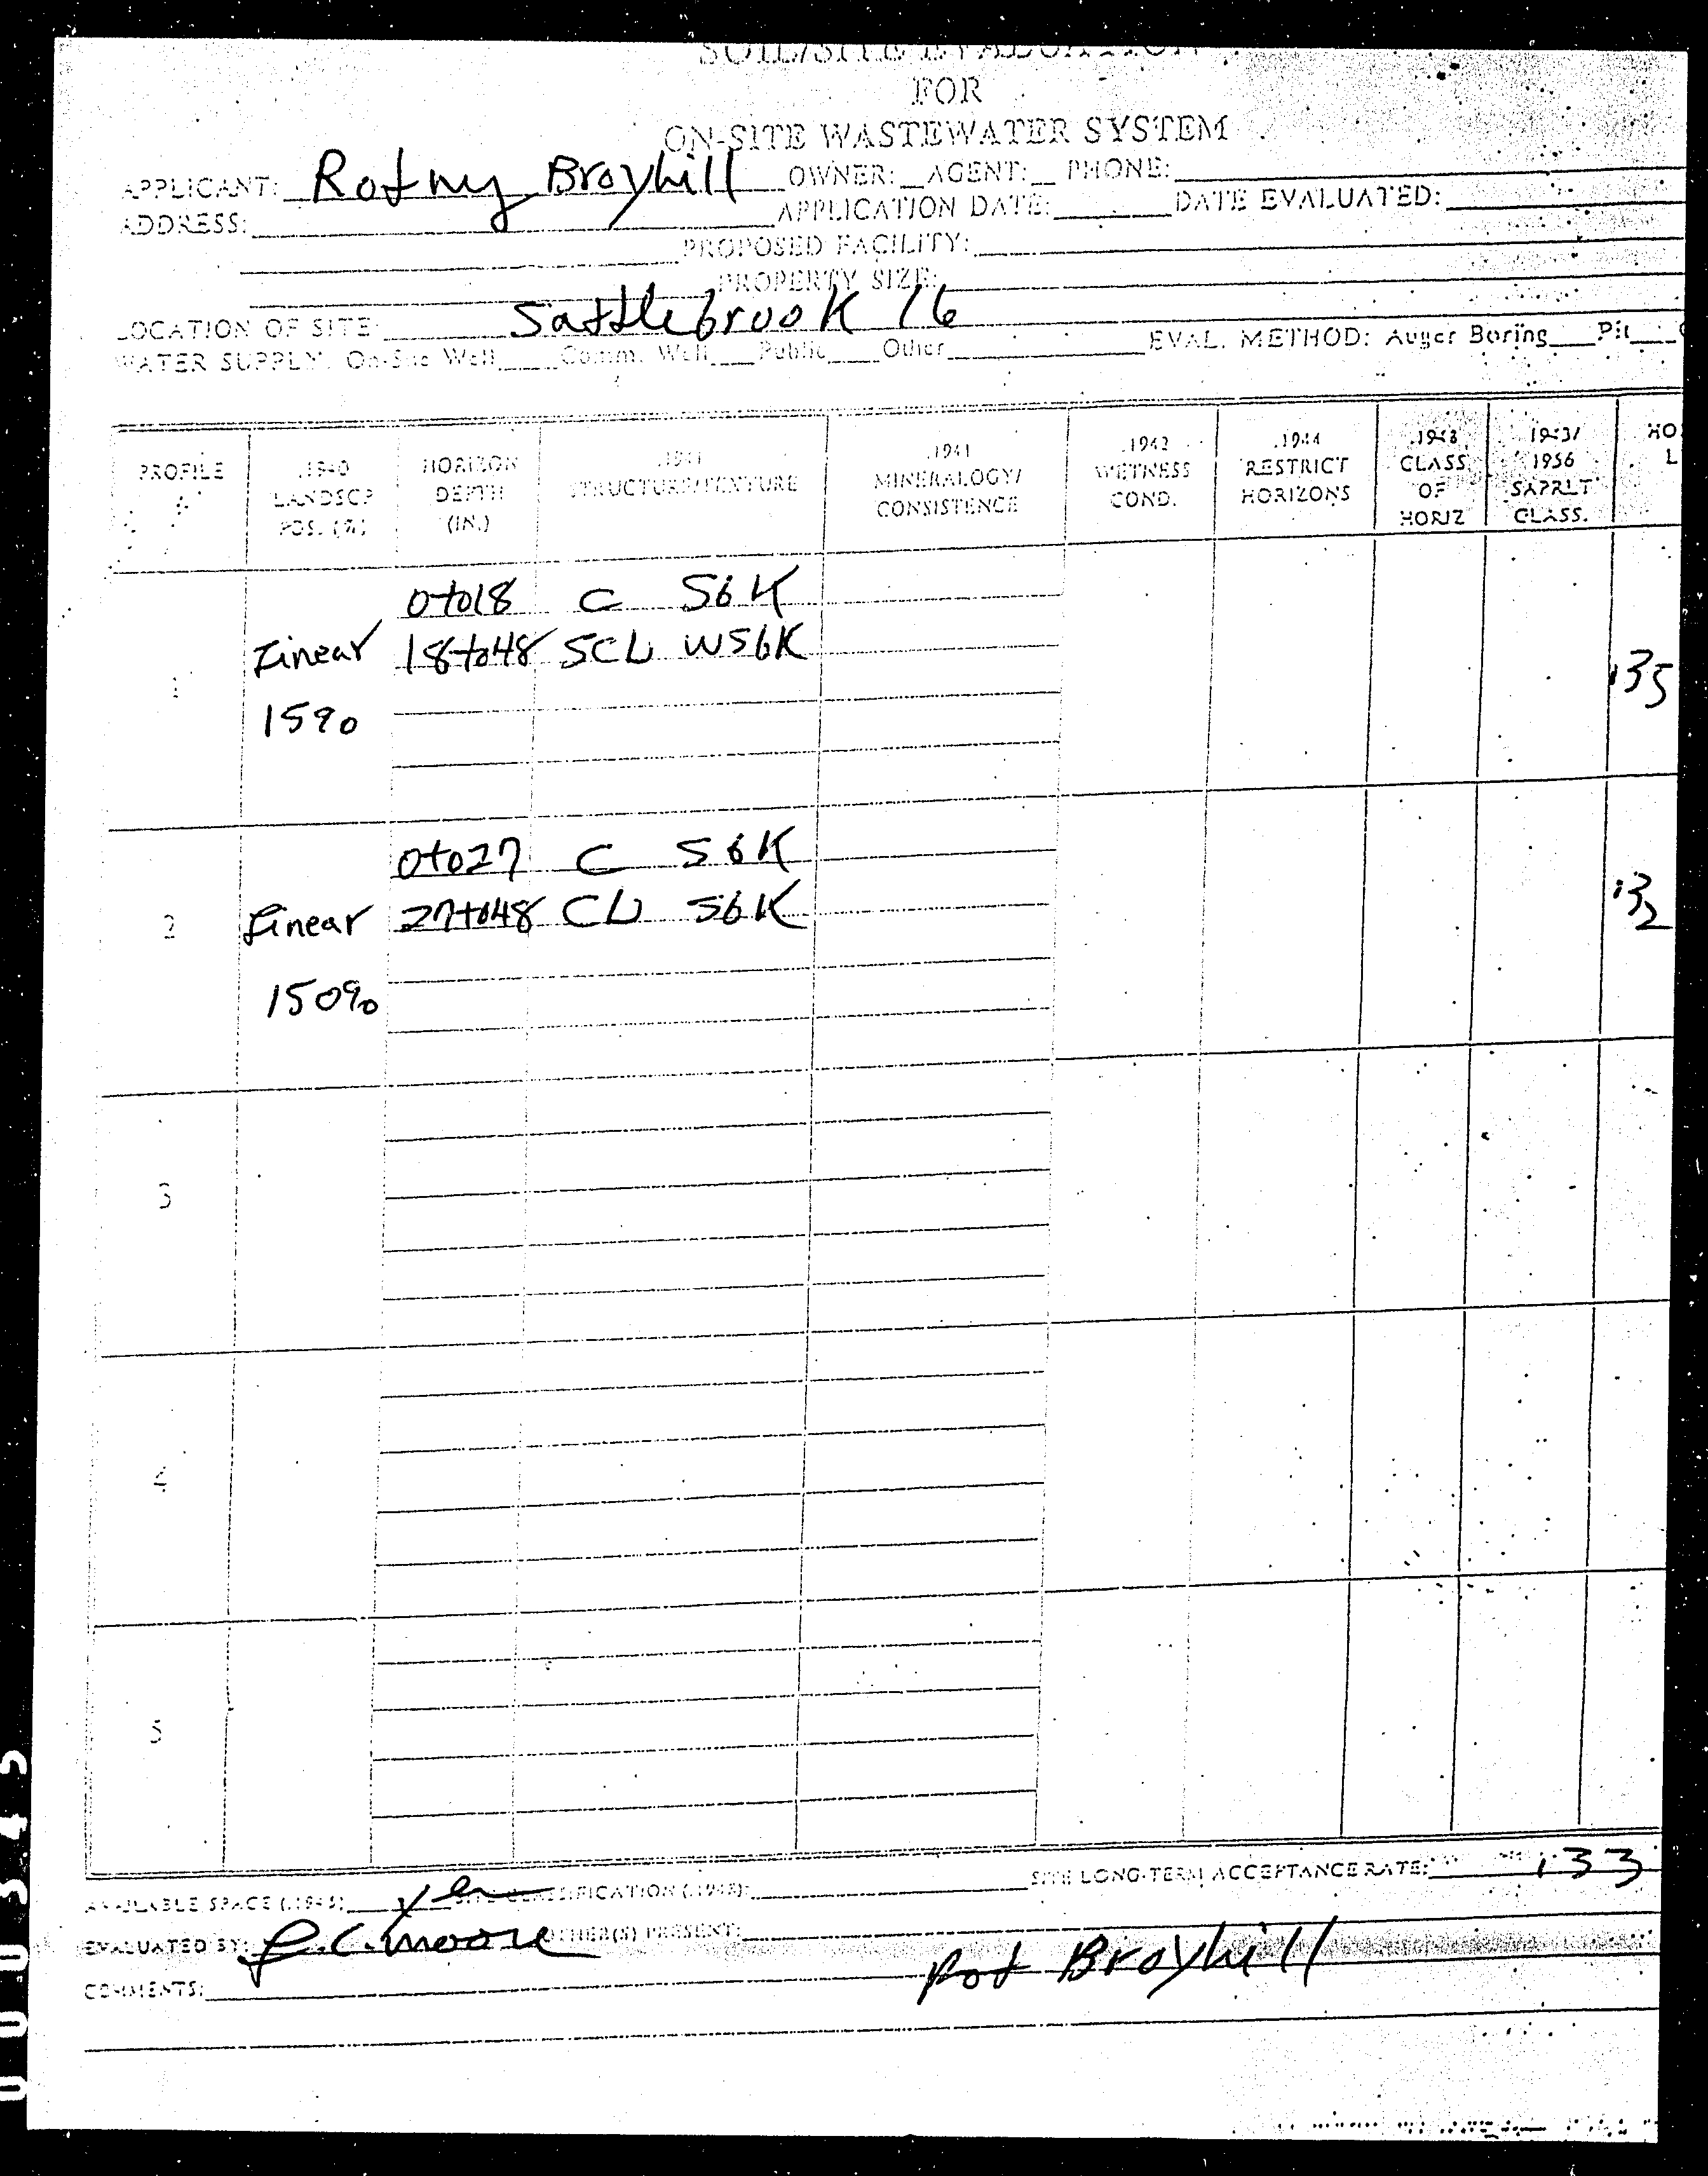 SOIL/SITE EVALUATION
FOR
ON-SITE WASTEWATER SYSTEM
APPLICANT: Rotny Broyhill OWNER: AGENT: PHONE:
ADDRESS: APPLICATION DATE: DATE EVALUATED:
PROPOSED FACILITY:
PROPERTY SIZE:
LOCATION OF SITE: Sattlebrook 16
WATER SUPPLY: On-Site Well Comm. Well Public Other EVAL. METHOD: Auger Boring Pit
PROFILE # .1940 LANDSCP POS. (%) HORIZON DEPTH (IN.) .1941 STRUCTURE/TEXTURE .1941 MINERALOGY/ CONSISTENCE .1942 WETNESS COND. .1944 RESTRICT HORIZONS .1948 CLASS OF HORIZ .1943/ 1956 SAPRLT CLASS. HO L
0to18 C S6K
1 Linear 18to48 SCL WS6K .35
15%
0to27 C S6K
2 Linear 27to48 CL S6K .32
150%
3
4
5
AVAILABLE SPACE (.1945): SITE CLASSIFICATION (.1948): SITE LONG-TERM ACCEPTANCE RATE: .33
EVALUATED BY: C. Moore OTHER(S) PRESENT:
COMMENTS: Rot Broyhill
00345